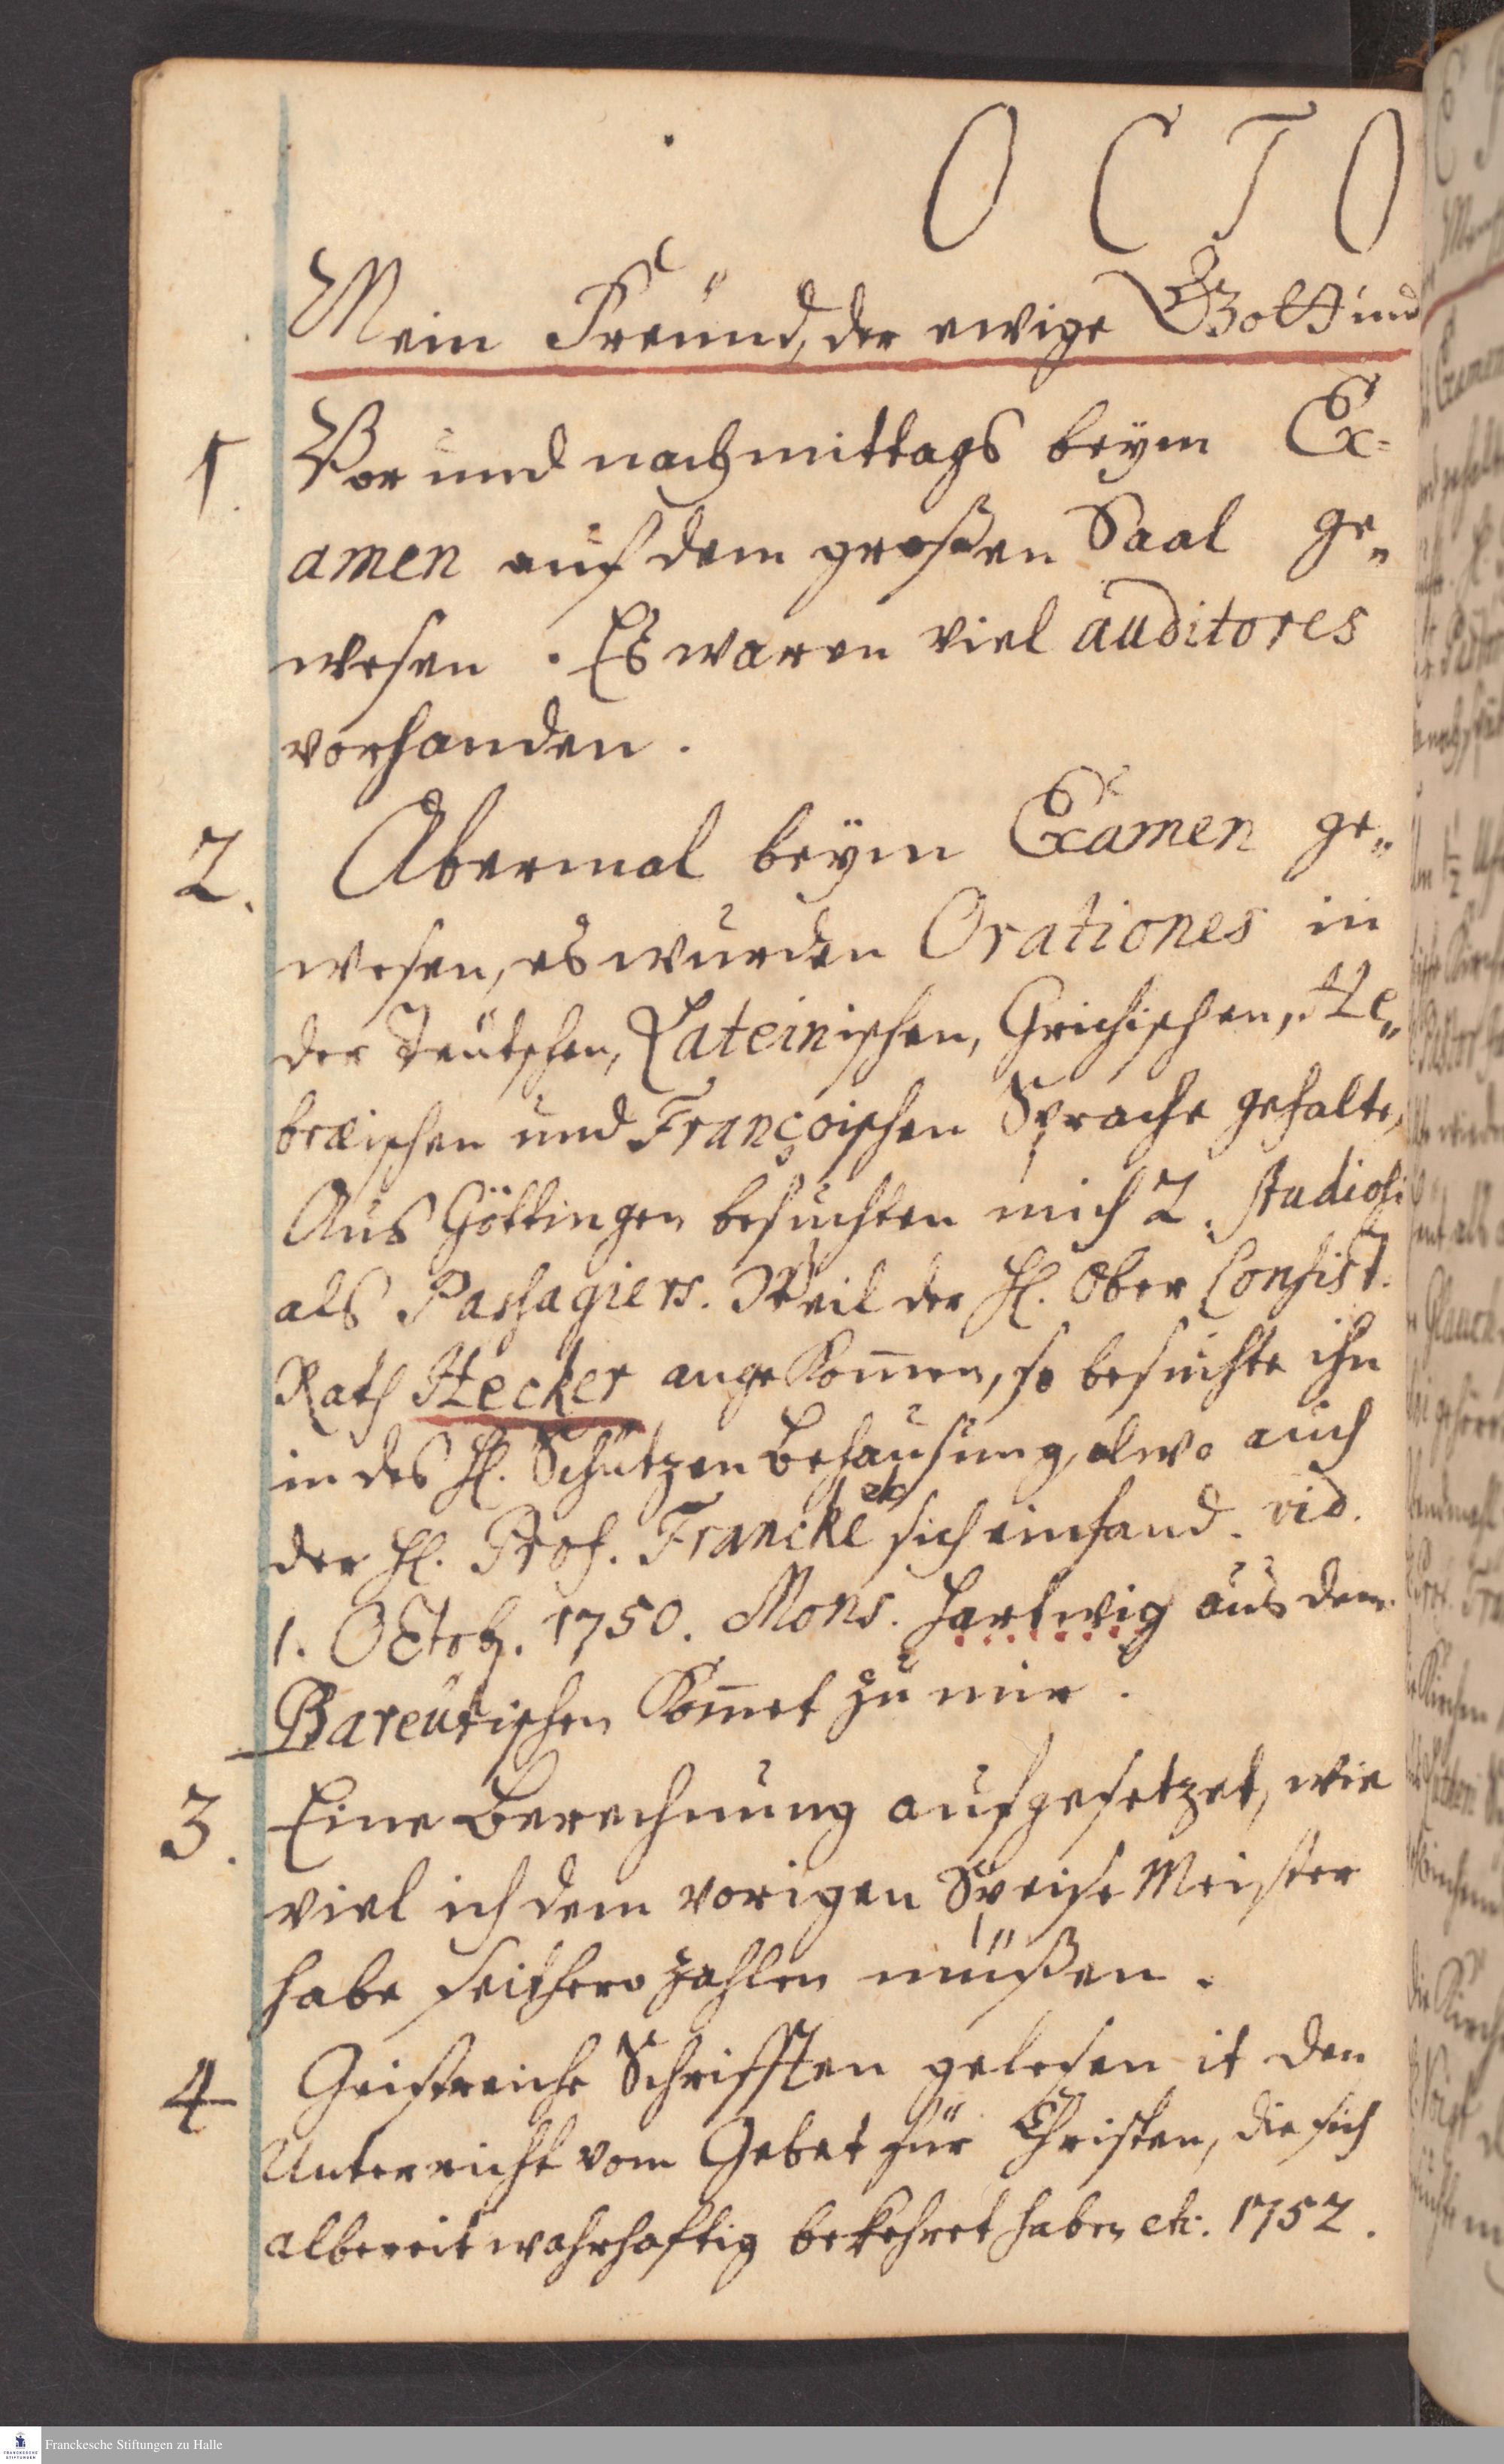 O C T O
Mein Freund, der ewige Gott und
1. Vor und nachmittags beym Ex=
amen auf dem großen Saal ge„
wesen. Es waren viel auditores
vorhanden.
2. Abermal beym Examen ge„
wesen, es wurden Orationes in
der Teutschen, Lateinischen, Grichischen, He„
bræischen und Françoischen Sprache gehalten,
Aus Göttingen besuchten mich 2. studiosi
als Passagiers. Weil der H. Ober Consist.
Rath Hecker angekom̄en, so besuchte ihn
in des H. Schützen Behausung, alwo auch
der H. Prof. Francke sich einfand. vid.
1. Octob. 1750. Mons. Hartwig aus dem
Bareutischen kom̄et zu mir.
3. Eine Berechnung aufgesetzet, wie
viel ich dem vorigen Speise Meister
habe seithero zahlen müßen.
4 Geistreiche Schrifften gelesen it den
Unterricht vom Gebet für Christen, die sich
albereit wahrhaftig bekehret haben etc. 1752.
Franckesche Stiftungen zu Halle